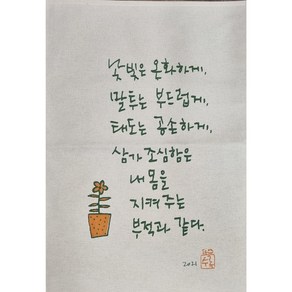 낯빛은 온화하게,
말투는 부드럽게,
태도는 공손하게,
삼가 조심함은
내 몸을
지켜 주는
부적과 같다.
2021